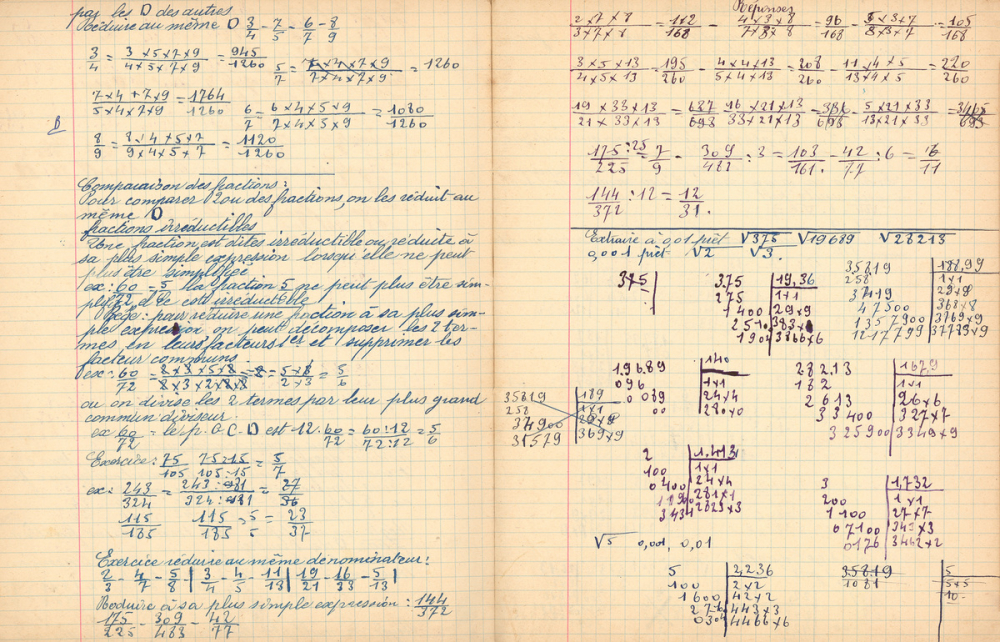 par les D des autres
Réduire au même D 3/4 - 7/5 - 6/7 - 8/9
3/4 = 3×5×7×9 / 4×5×7×9 = 945/1260
5/7 = 7×4×7×9 / 7×4×7×9 = 1260
7×4+7×9 / 5×4×7×9 = 1764/1260
6/7 = 6×4×5×9 / 7×4×5×9 = 1080/1260
8/9 = 8×4×5×7 / 9×4×5×7 = 1120/1260
Comparaison des fractions :
Pour comparer 2 ou des fractions, on les réduit au
même D
fractions irréductibles
Une fraction est dites irréductible ou réduite à
sa plus simple expression lorsqu'elle ne peut
plus être simplifiée
ex : 60/72 = 5 la fraction 5 ne peut plus être sim-
plifiée est irréductible
Règle : pour réduire une fraction à sa plus sim-
ple expression on peut décomposer les 2 ter-
mes en leurs facteurs 1er et supprimer les
facteur communs
ex : 60/72 = 2×3×5×2 / 2×3×2×2×3 = 5×2 / 2×3 = 5/6
ou on divise les 2 termes par leur plus grand
commun diviseur
ex 60/72 le p.G.C.D est 12. 60/72 = 60:12 / 72:12 = 5/6
Exercice : 75/105 75:15 / 105:15 = 5/7
ex : 243/324 = 243:81 / 324:81 = 27/36
115/185 115/185 : 5/5 = 23/37
Exercice réduire au même dénominateur :
2/3 - 4/7 - 5/8 | 3/4 - 4/5 - 11/13 | 19/21 - 16/33 - 5/13 |
Réduire à sa plus simple expression : 144/372
175/225 - 309/483 - 42/77
Réponses
2×7×8 / 3×7×8 = 112/168 - 4×3×8 / 7×3×8 = 96/168 - 5×3×7 / 8×3×7 = 105/168
3×5×13 / 4×5×13 = 195/260 - 4×4×13 / 5×4×13 = 208/260 - 11×4×5 / 13×4×5 = 220/260
19×33×13 / 21×33×13 = 687/693 16×21×13 / 33×21×13 = 336/693 - 5×21×33 / 13×21×33 = 3465/693
175/225 :25 = 7/9 - 309/483 : 3 = 103/161 . - 42/77 : 6 = 6/11
144/372 : 12 = 12/31 .
Extraire à 0,01 près √375 √19689 √28213
0,001 près √2 √3 .
375
375 19,36
275 1×1
1400 29×9
2510 383×3
1904 3866×6
35819 188,99
258 1×1
3419 29×9
47500 368×8
1357900 3769×9
1217799 37789×9
19689 140
096 1×1
0089 24×4
00 280×0
28213 167,9
182 1×1
2613 26×6
33400 327×7
325900 3349×9
35819 189
258 1×1
34900 29×9
31579 369×9
2 1,413
100 1×1
0400 24×4
1190 281×1
3431 2823×3
3 1,732
200 1×1
1100 27×7
07100 343×3
0176 3462×2
√5 0,001, 0,01
5 2,236
100 2×2
1600 42×2
276 443×3
0304 4466×6
35819 5
1081 5×5
10-